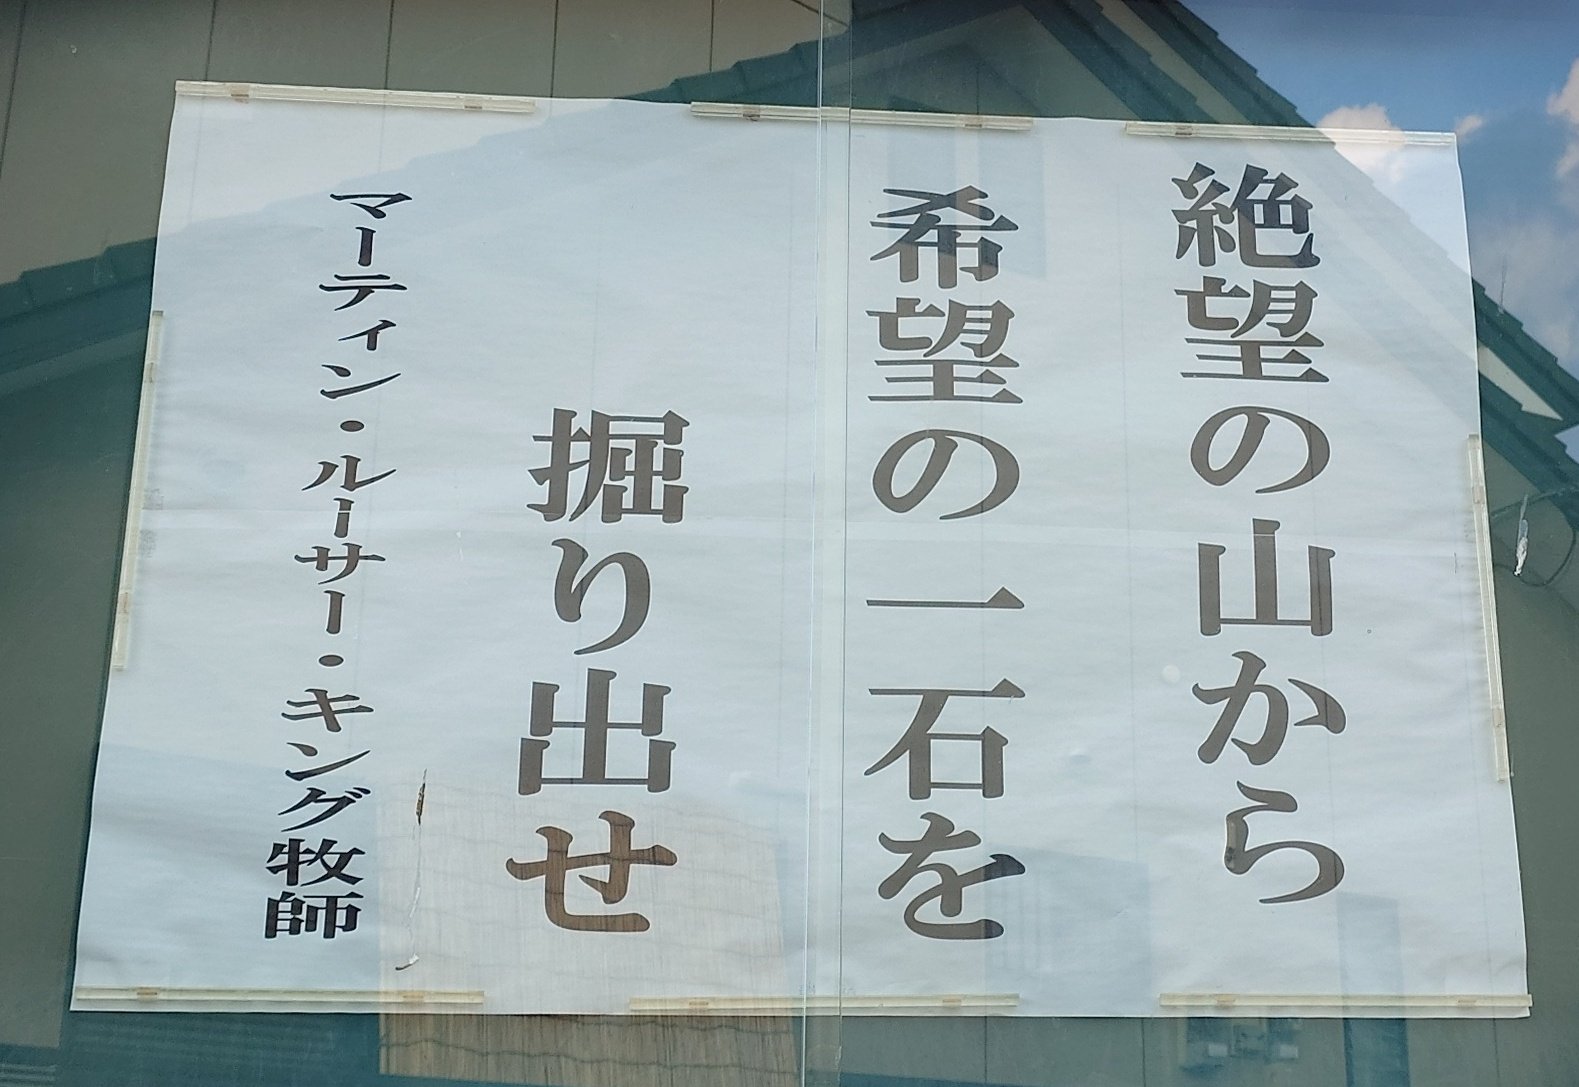 絶望の山から
希望の一石を
掘り出せ
マーティン・ルーサー・キング牧師